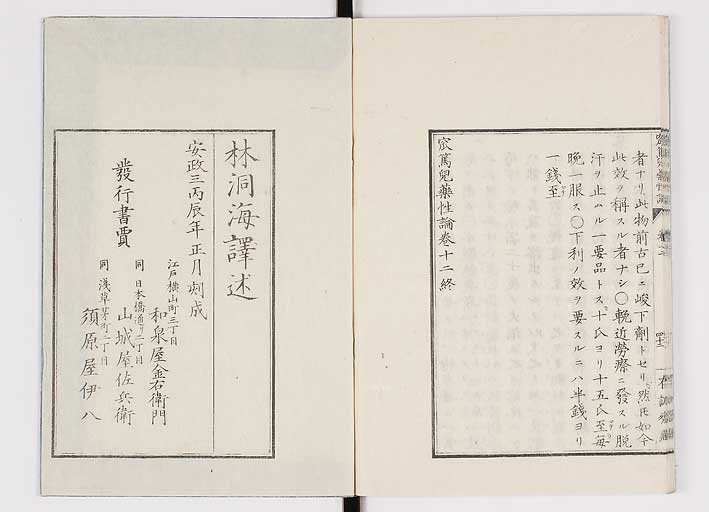 者ナリ此物前古已ニ峻下劑トセリ然圧如今
此效ヲ稱スル者ナシ〇輓近勞瘵ニ發スル脱
汗ヲ止ムル一要品トス十氏ヨリ十五氏至毎
晩一服ス〇下利ノ效ヲ要スルニハ半錢ヨリ
一錢至
窊篤兒藥性論卷十二終
林洞海譯述
安政三丙辰年正月刻成
發行書賈
江戸横山町三丁目
和泉屋金右衛門
同日本橋通リ二丁目
山城屋佐兵衛
同淺草茅町二丁目
須原屋伊八